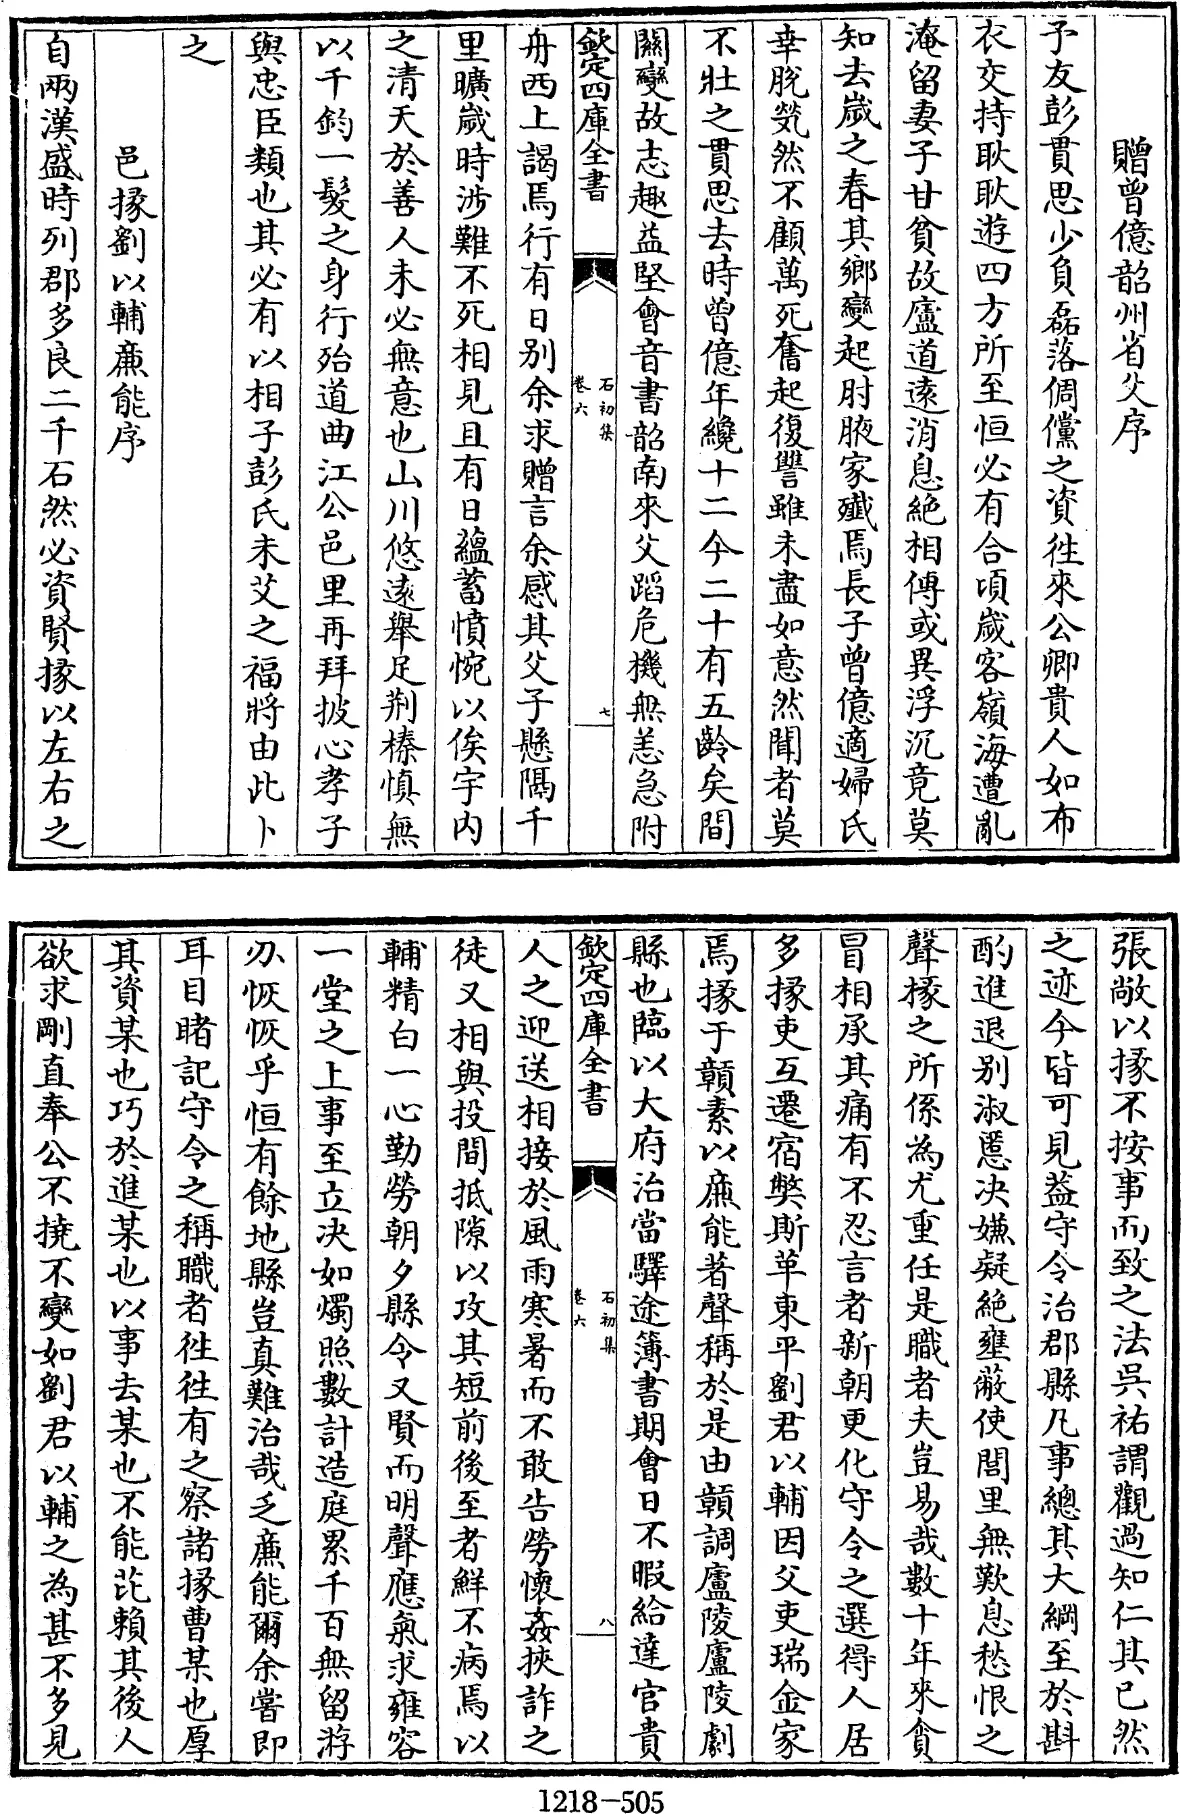 贈曾億韶州省父序
予友彭貫思少負磊落倜儻之資徃來公卿貴人如布
衣交持耿耿遊四方所至恒必有合頃歲客嶺海遭亂
淹留妻子甘貧故廬道遠消息絶相傳或異浮沉竟莫
知去歲之春其鄉變起肘腋家殱焉長子曾億適婦氏
幸脫煢然不顧萬死奮起復讐雖未盡如意然聞者莫
不壯之貫思去時曾億年纔十二今二十有五齡矣間
關變故志趣益堅會音書韶南來父蹈危機無恙急附
欽定四庫全書
石初集
卷六
七
舟西上謁焉行有日别余求贈言余感其父子懸隔千
里曠歲時涉難不死相見且有日蘊蓄憤惋以俟宇内
之清天於善人未必無意也山川悠遠舉足荆榛慎無
以千鈞一髮之身行殆道曲江公邑里再拜披心孝子
與忠臣類也其必有以相子彭氏未艾之福將由此卜
之
邑掾劉以輔廉能序
自兩漢盛時列郡多良二千石然必資賢掾以左右之
張敞以掾不按事而致之法吳祐謂觀過知仁其已然
之迹今皆可見葢守令治郡縣凡事總其大綱至於斟
酌進退别淑慝决嫌疑絶壅蔽使閭里無歎息愁恨之
聲掾之所係為尤重任是職者夫豈易哉數十年來貪
冒相承其痛有不忍言者新朝更化守令之選得人居
多掾吏互遷宿獘斯革東平劉君以輔因父吏瑞金家
焉掾于贛素以廉能著聲稱於是由贛調廬陵廬陵劇
縣也臨以大府治當驛途簿書期會日不暇給達官貴
欽定四庫全書
石初集
卷六
八
人之迎送相接於風雨寒暑而不敢告勞懷姦挾詐之
徒又相與投間抵隙以攻其短前後至者鮮不病焉以
輔精白一心勤勞朝夕縣令又賢而明聲應氣求雍容
一堂之上事至立决如燭照數計造庭累千百無留游
刃恢恢乎恒有餘地縣豈真難治哉乏廉能爾余嘗即
耳目睹記守令之稱職者徃徃有之察諸掾曹某也厚
其資某也巧於進某也以事去某也不能芘賴其後人
欲求剛直奉公不撓不變如劉君以輔之為甚不多見
1218-505